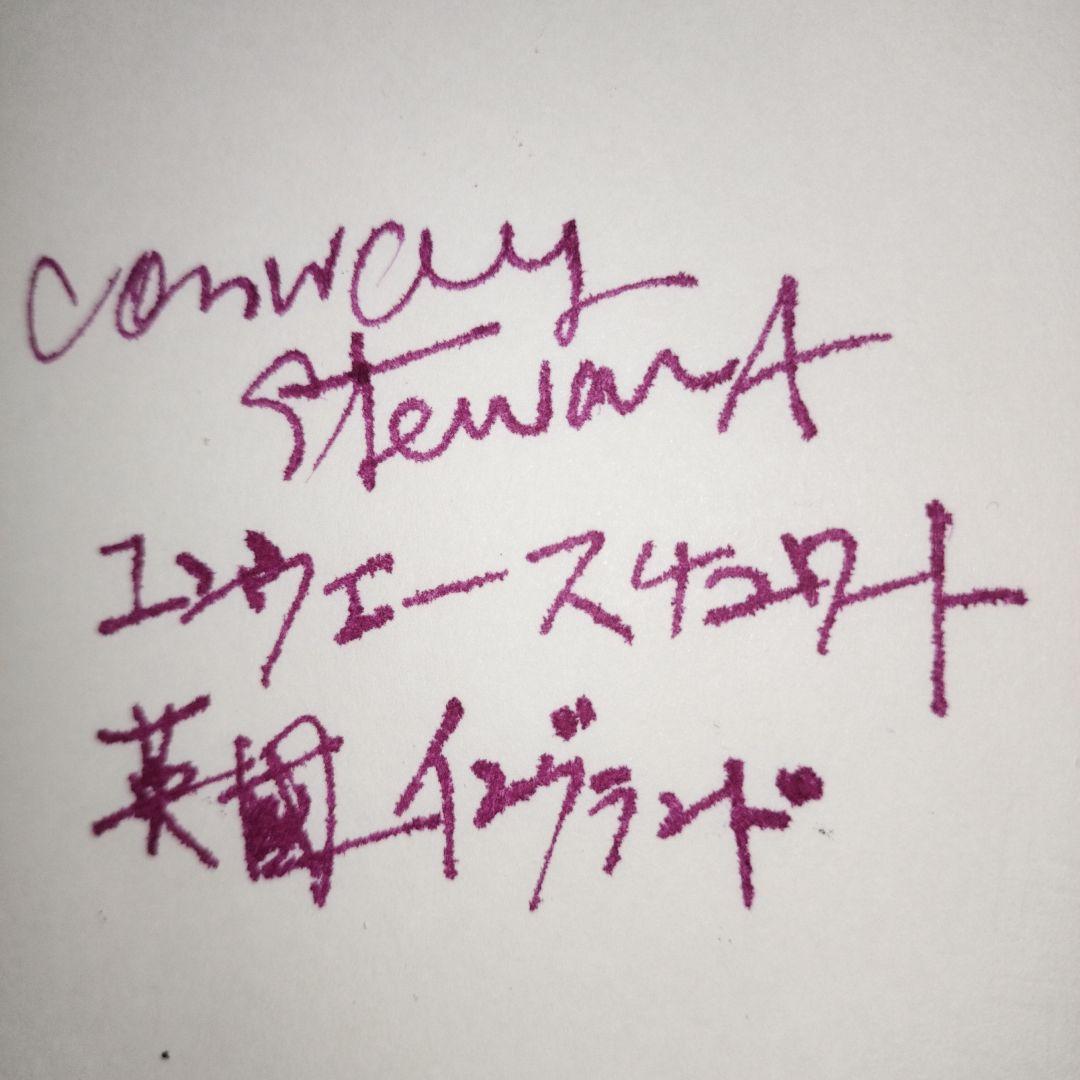 conway
stewart
コンウェースチュワート
英國イングランド